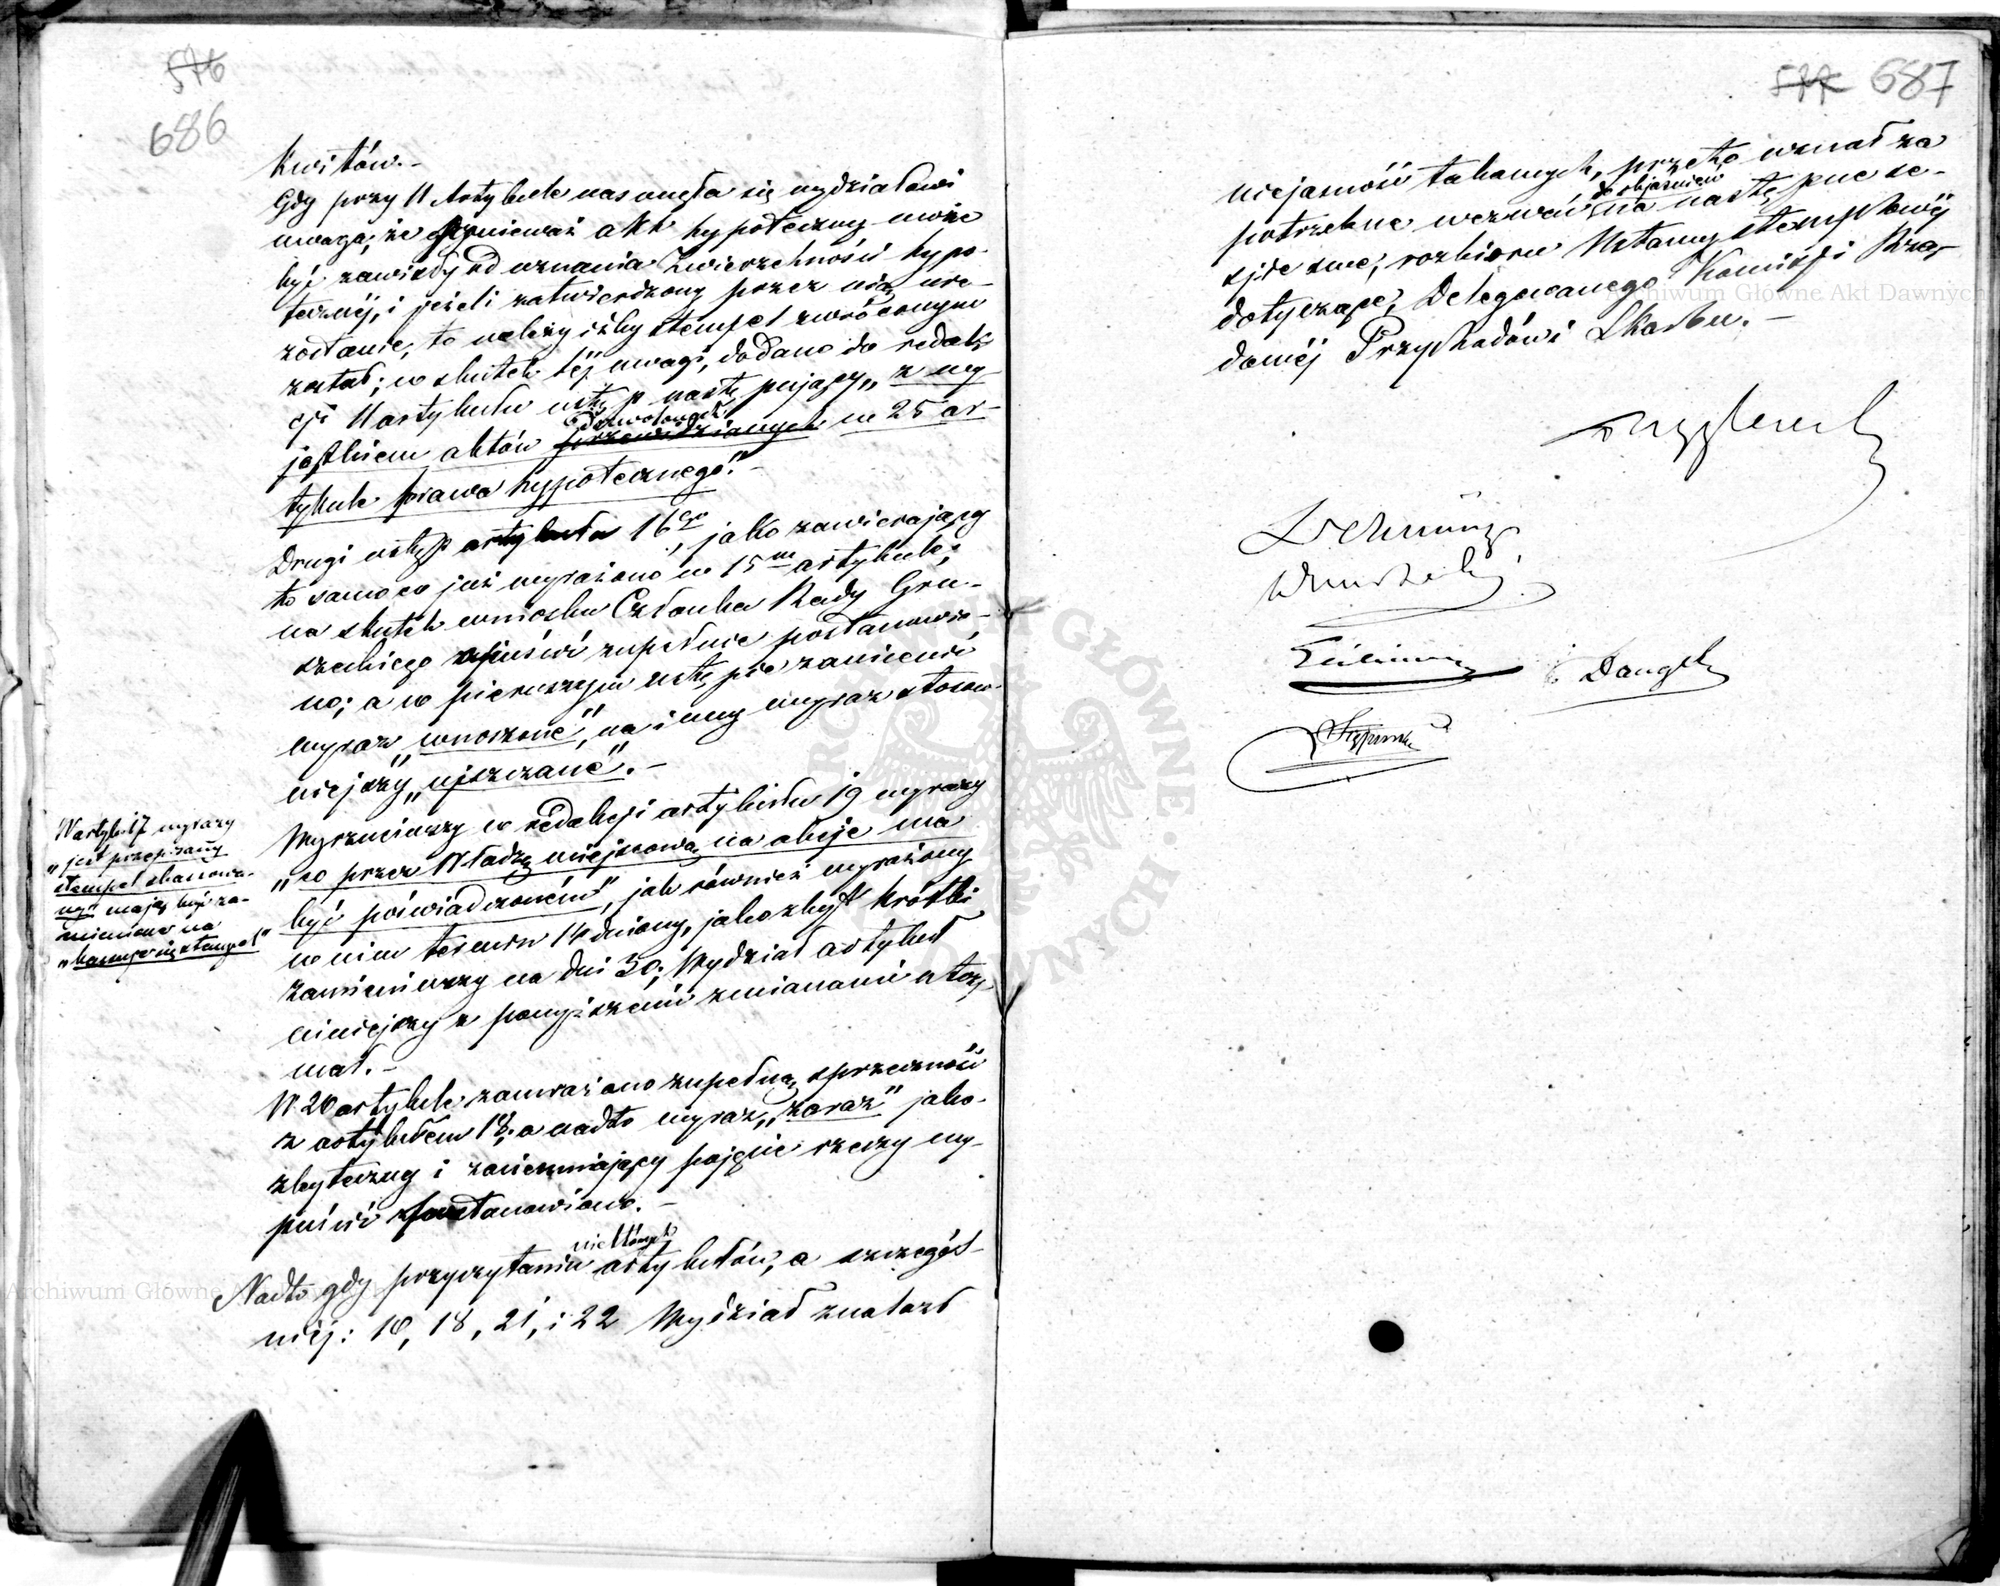 576
686
Kwitów.-
Gdy przy 11 Artykule nasunęła się wydziałowi
uwaga; że ponieważ akt hypoteczny może
być zawisły od uznania Zwierzchności hypo-
tecznéj, i jeżeli zatwierdzony przez nią nie-
zostanie, to należy iżby stempel zwróconym
został; w skutek téj uwagi, dodano do redak-
cji 11 artykułu ustęp następujący „z wy-
jątkiem aktów przewidzianych w 25 ar-
tykule prawa hypotecznego."-
Drugi ustęp artykułu 16go, jako zawierający
to samo co już wyrażono w 15m artykule;
na skutek wniosku Członka Rady Gru-
szeckiego opuścić zupełnie postanowio-
no; a w pierwszym ustępie zamienić
wyraz „wnoszone", na inny wyraz stosow-
niejszy „uiszczane".-
W artyk: 17 wyrazy
„jest przepisany
stempel szacunko-
wy" mają być za-
mienione na
Wyrzuciwszy w redakcji artykułu 19 wyrazy
„co przez Władzę miejscową na akcje ma
być poświadczoném", jak również wyrażony
w nim termin 14 dniowy, jako zbyt krótki
zamieniwszy na dni 30; Wydział artykuł
niniejszy z powyższemi zmianami utrzy-
mał.-
W 20 artykule zauważano zupełną sprzeczność
z artykułem 18; a nadto wyraz „zaraz" jako
zbyteczny i zaciemniający pojęcie rzeczy wy-
puścić postanowiono.-
niektórych
Nadto gdy przy czytaniu artykułów, a szczegól-
niéj: 10, 18, 21, i 22 Wydział znalazł
577 687
niejasność takowych, przeto uznał za
do objaśnień
potrzebne wezwać na następne se-
sje swe, rozbioru Ustawy stemplowéj
dotyczące, Delegowanego Komissji Rzą-
dowéj Przychodów i Skarbu.-
Dangel
Archiwum Główne Akt Dawnych
Archiwum Główne Akt Dawnych
ARCHIWUM GŁÓWNE AKT DAWNYCH